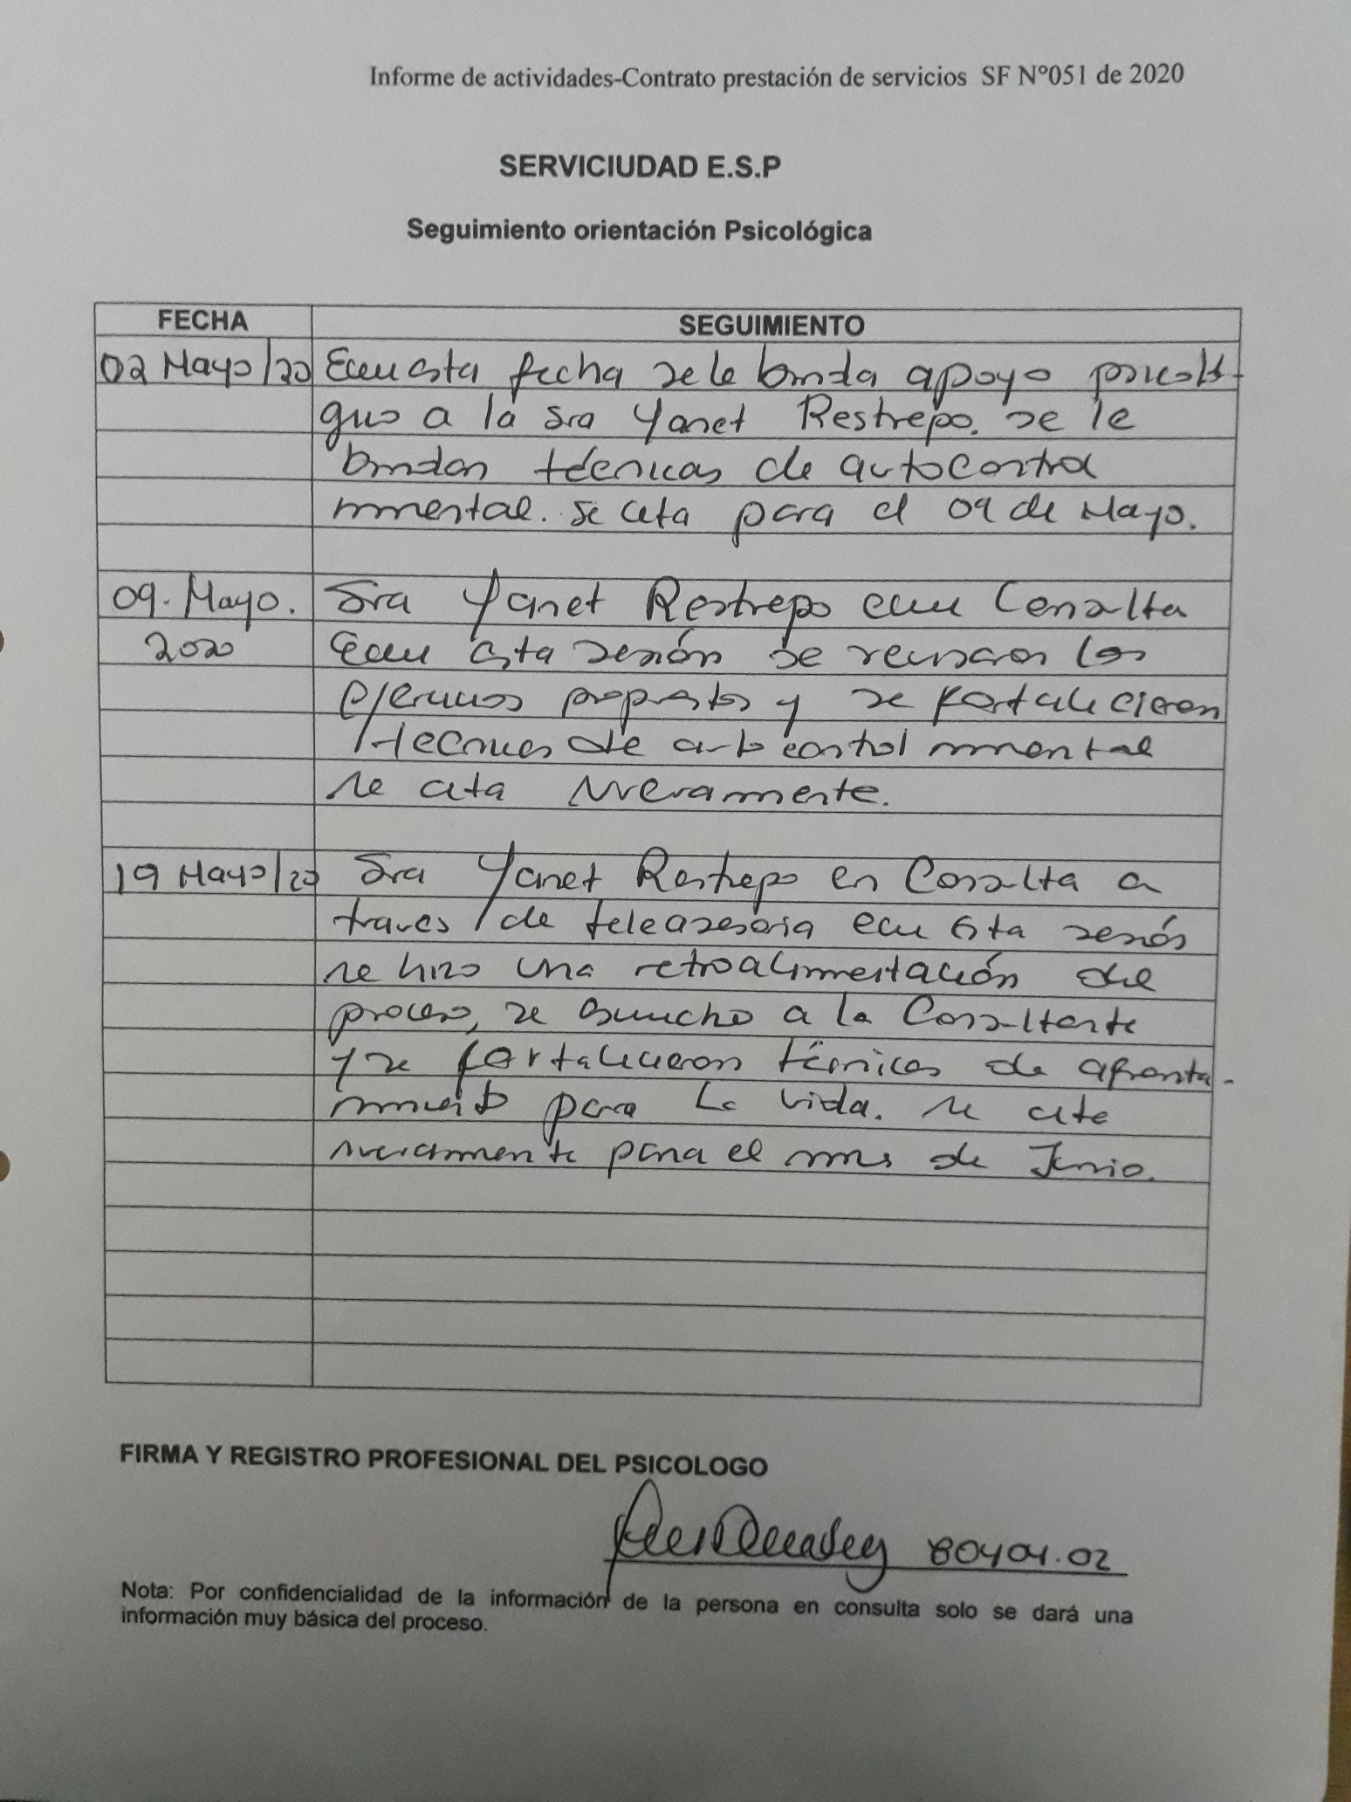 Informe de actividades-Contrato prestación de servicios SF N°051 de 2020
SERVICIUDAD E.S.P
Seguimiento orientación Psicológica
FECHA SEGUIMIENTO
02 Mayo/20 En esta fecha se le brinda apoyo psicoló-
gico a la Sra Yanet Restrepo. se le
brindan técnicas de autocontrol
mental. Se cita para el 09 de Mayo.
09. Mayo. Sra Yanet Restrepo en Consulta
2020 En esta sesión se revisaron los
ejercicios propuestos y se fortalecieron
técnicas de autocontrol mental
se cita nuevamente.
19 Mayo/20 Sra Yanet Restrepo en Consulta a
traves de teleasesoria en esta sesión
se hizo una retroalimentación del
proceso, se escucho a la Consultante
y se fortalecieron técnicas de afronta-
miento para la vida. se cita
nuevamente para el mes de Junio.
FIRMA Y REGISTRO PROFESIONAL DEL PSICOLOGO
80404.02
Nota: Por confidencialidad de la información de la persona en consulta solo se dará una
información muy básica del proceso.